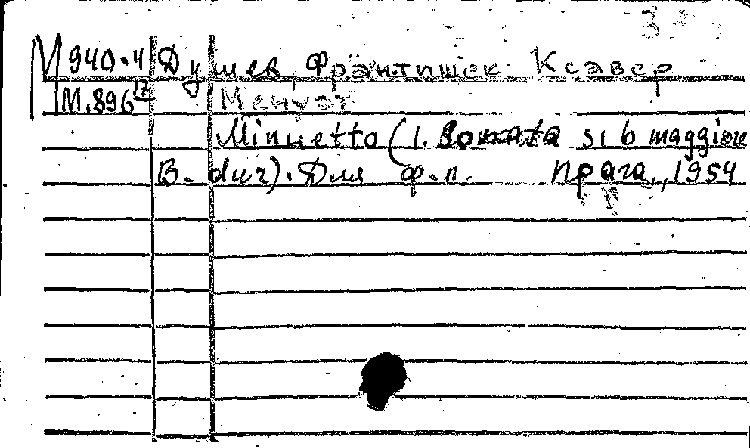 М 940.4 Душек, Франтишек Ксавер
М.896 Менуэт
Minuetto (1. Sonata si b maggiore
B-dur). Для ф.п. Прага, 1954